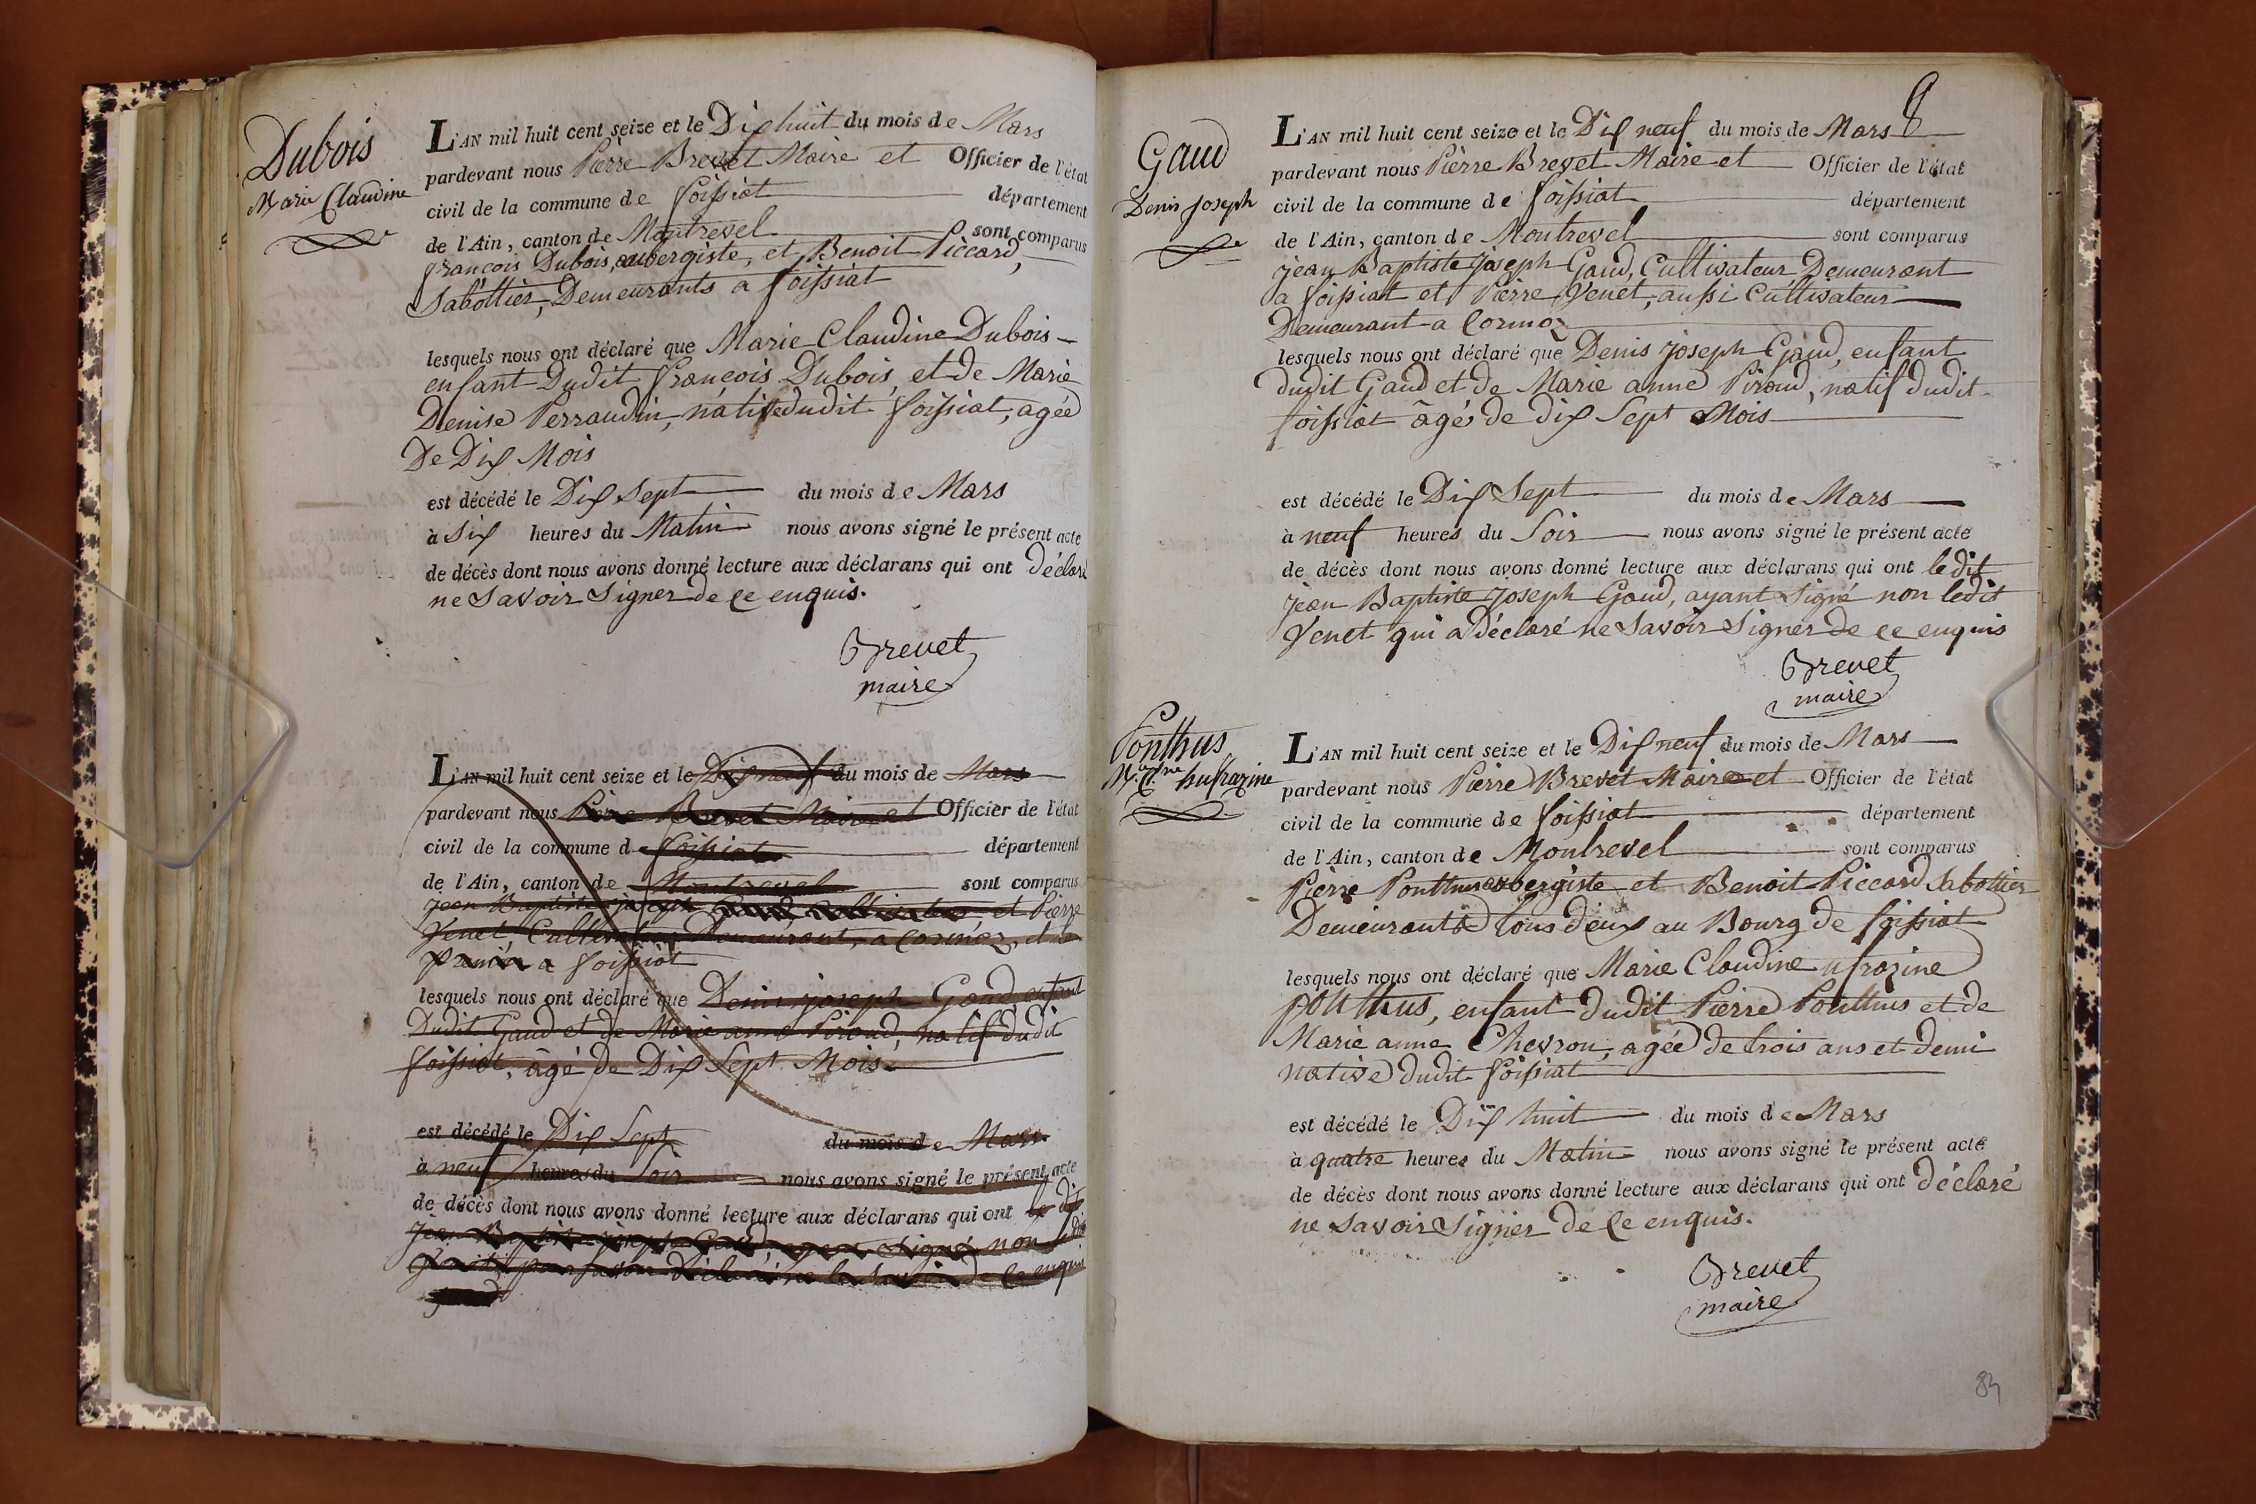 Dubois
Marie Claudine
L'AN mil huit cent seize et le Dix huit du mois de Mars
pardevant nous Pierre Brevet Maire et Officier de l'état
civil de la commune de foissiat département
de l'Ain, canton de Montrevel sont comparus
françois Dubois, aubergiste, et Benoit Piccard,
Sabottier, Demeurants a foissiat
lesquels nous ont déclaré que Marie Claudine Dubois
enfant Dudit françois Dubois, et de Marie
Denise Perraudin, native dudit foissiat, agée
De Dix Mois
est décédé le Dix Sept du mois de Mars
à Six heures du Matin nous avons signé le présent acte
de décès dont nous avons donné lecture aux déclarans qui ont déclaré
ne Savoir Signer de ce enquis.
Brevet
maire
L'AN mil huit cent seize et le Dix neuf du mois de Mars
pardevant nous Pierre Brevet Maire et Officier de l'état
civil de la commune de foissiat département
de l'Ain, canton de Montrevel sont comparus
jean Baptiste joseph Gaud cultivateur et Pierre
Venet, Cultivateur Demeurant, a Cormoz, et le
Premier a foissiat
lesquels nous ont déclaré que Denis joseph Gaud enfant
Dudit Gaud et de Marie anne Piroud, natif dudit
foissiat, âgé de Dix Sept Mois
est décédé le Dix Sept du mois de Mars
à neuf heures du Soir nous avons signé le présent acte
de décès dont nous avons donné lecture aux déclarans qui ont le dit
jean Baptiste joseph Gaud, ayant Signé non ledit
de ce enquis
8
Gaud
Denis joseph
L'AN mil huit cent seize et le Dix neuf du mois de Mars
pardevant nous Pierre Brevet Maire et Officier de l'état
civil de la commune de foissiat département
de l'Ain, canton de Montrevel sont comparus
jean Baptiste joseph Gaud, Cultivateur Demeurant
a foissiat et Pierre Venet, aussi Cultivateur
Demeurant a Cormoz
lesquels nous ont déclaré que Denis joseph Gaud, enfant
dudit Gaud et de Marie anne Piroud, natif dudit
foissiat âgé de dix Sept Mois
est décédé le Dix Sept du mois de Mars
à neuf heures du Soir nous avons signé le présent acte
de décès dont nous avons donné lecture aux déclarans qui ont ledit
jean Baptiste joseph Gaud, ayant Signé non ledit
Venet qui a Déclaré ne Savoir Signer de ce enquis
Brevet
maire
Ponthus
M. C.dne hufrazine
L'AN mil huit cent seize et le Dix neuf du mois de Mars
pardevant nous Pierre Brevet Maire et Officier de l'état
civil de la commune de foissiat département
de l'Ain, canton de Montrevel sont comparus
Pierre Ponthus aubergiste et Benoit Piccard Sabottier
Demeurants tous deux au Bourg de foissiat
lesquels nous ont déclaré que Marie Claudine ufrazine
ponthus, enfant dudit Pierre Ponthus et de
Marie anne Chevron, agée de trois ans et demi
native dudit foissiat
est décédé le Dix huit du mois de Mars
à quatre heures du Matin nous avons signé le présent acte
de décès dont nous avons donné lecture aux déclarans qui ont déclaré
ne savoir Signer de Ce enquis.
Brevet
maire
83